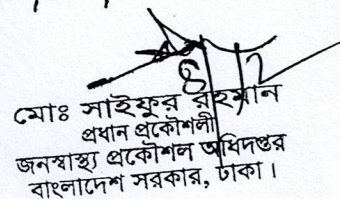 মোঃ সাইফুর রহমান
প্রধান প্রকৌশলী
জনস্বাস্থ্য প্রকৌশল অধিদপ্তর
বাংলাদেশ সরকার, ঢাকা।